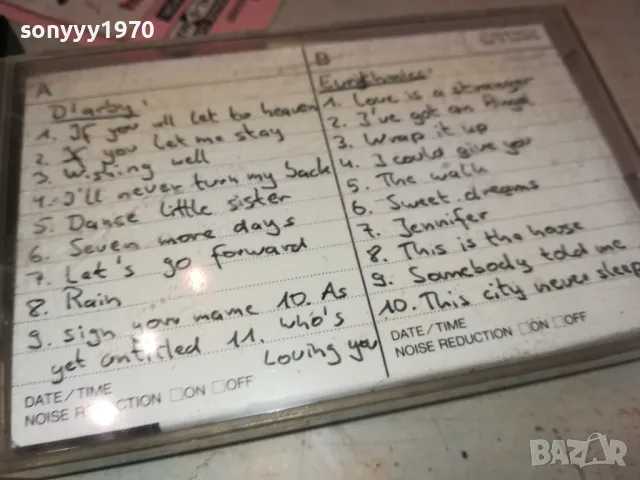 sonyyy1970
A
D'arby'
1. If you all let to heaven
2. If you let me stay
3. Wishing well
4. I'll never turn my back
5. Dance little sister
6. Seven more days
7. Let's go forward
8. Rain
9. Sign your name 10. As
yet untitled 11. Who's
Loving you
DATE/TIME
NOISE REDUCTION □ON □OFF
B
Eurythmics'
1. Love is a stranger
2. I've got an Angel
3. Wrap it up
4. I could give you
5. The walk
6. Sweet dreams
7. Jennifer
8. This is the house
9. Somebody told me
10. This city never sleep
DATE/TIME
NOISE REDUCTION □ON □OFF
BAZAR